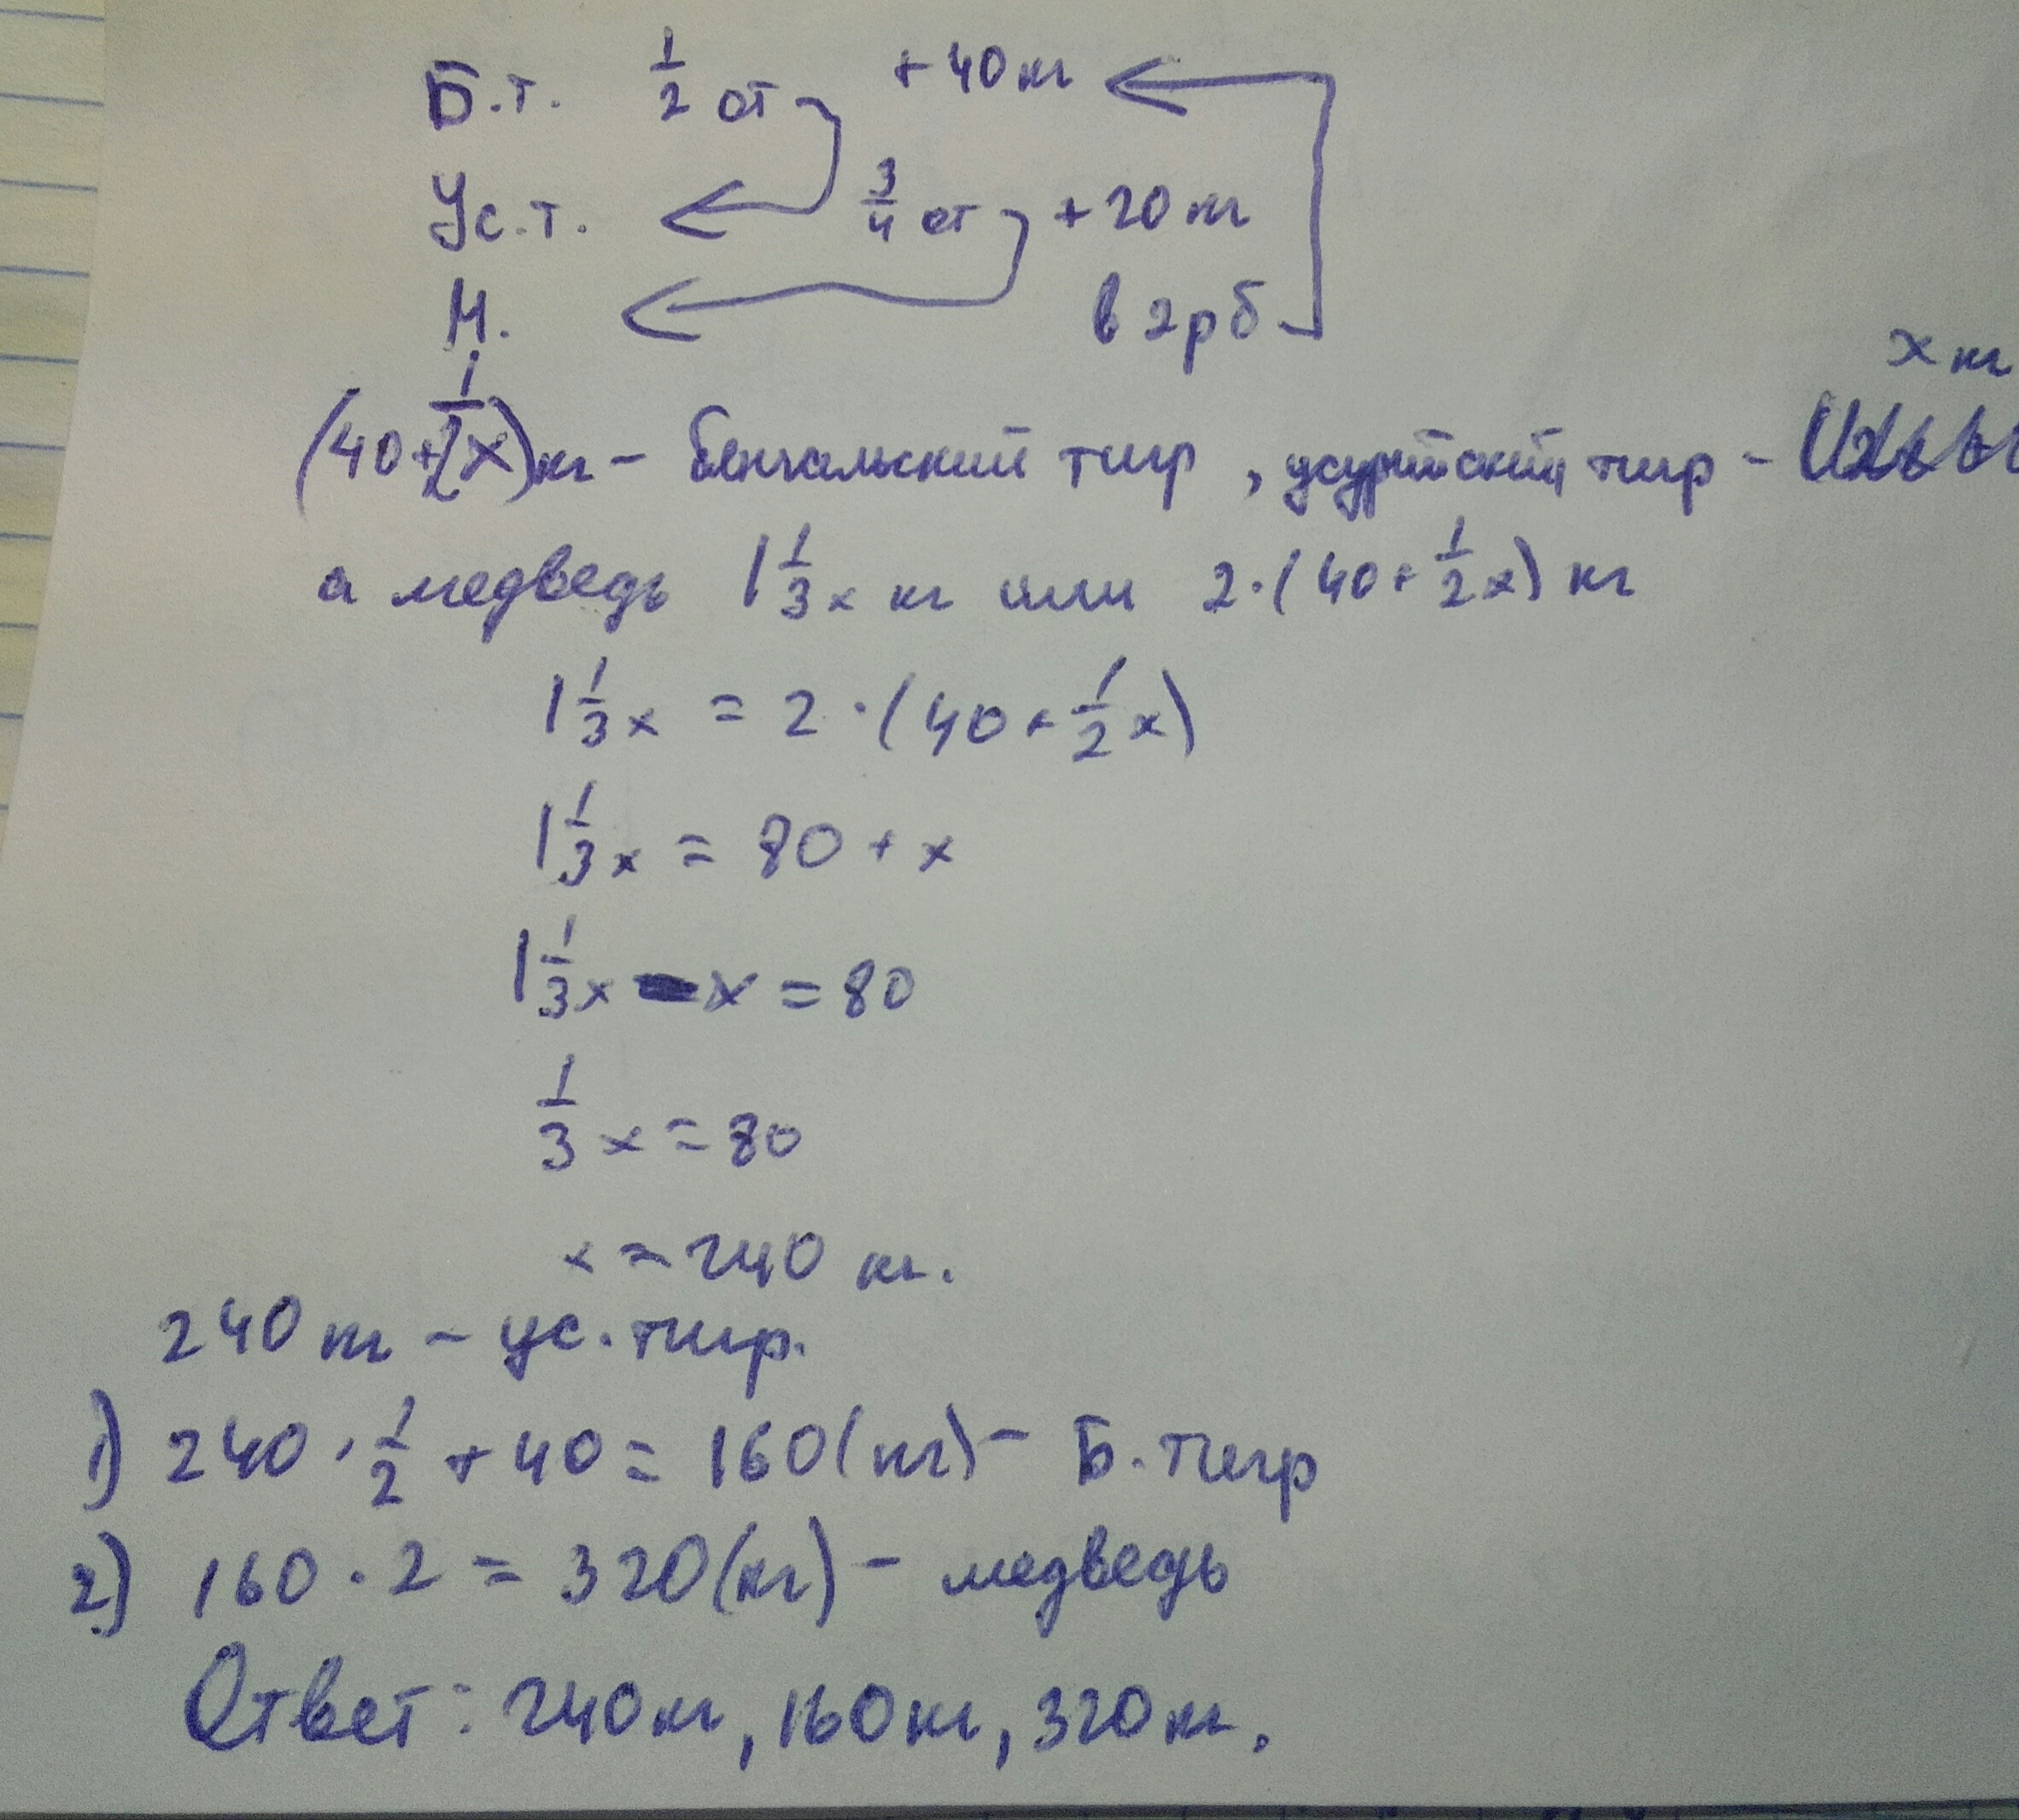 Б.т. 1/2 от +40 кг
Ус.т. 3/4 от +20 кг
М. в 2 р б
х кг
(40+1/2х)кг – бенгальский тигр, усурийский тигр –
а медведь 1 1/3х кг или 2·(40+1/2х) кг
1 1/3х = 2·(40+1/2х)
1 1/3х = 80 + х
1 1/3х - х = 80
1/3х = 80
х = 240 кг.
240 кг – ус. тигр.
1) 240 · 1/2 + 40 = 160(кг) – Б. тигр
2) 160 · 2 = 320(кг) – медведь
Ответ: 240кг, 160кг, 320кг.